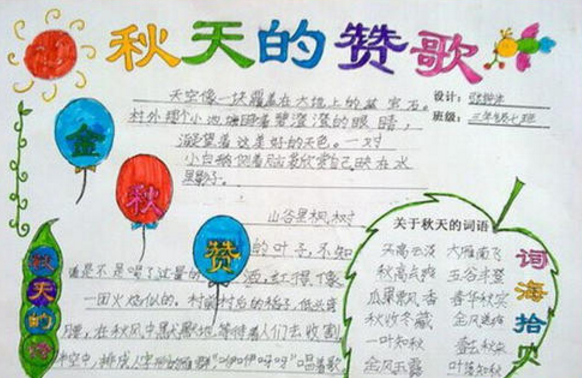 秋天的赞歌
设计：
班级：三年级七班
天空像一块覆盖在大地上的蓝宝石。
村外那个小池塘睁着碧澄澄的眼睛，
凝望着这美好的天色。一对
小白鹅侧着后欣赏自己映在水
里影子。
金
秋
赞
山谷里枫树
的叶子，不知
是不是喝了过量的酒，红得像
一团火焰似的。村前村后的稻子，低头弯
腰，在秋风中默默地等待着人们去收割
空中，排成人字形的雁群，
秋天的
关于秋天的词语
天高云淡 大雁南飞
秋高气爽 五谷丰登
瓜果飘香 春华秋实
秋收冬藏 金风送
一叶知秋
金风玉露 叶落知秋
词海拾贝